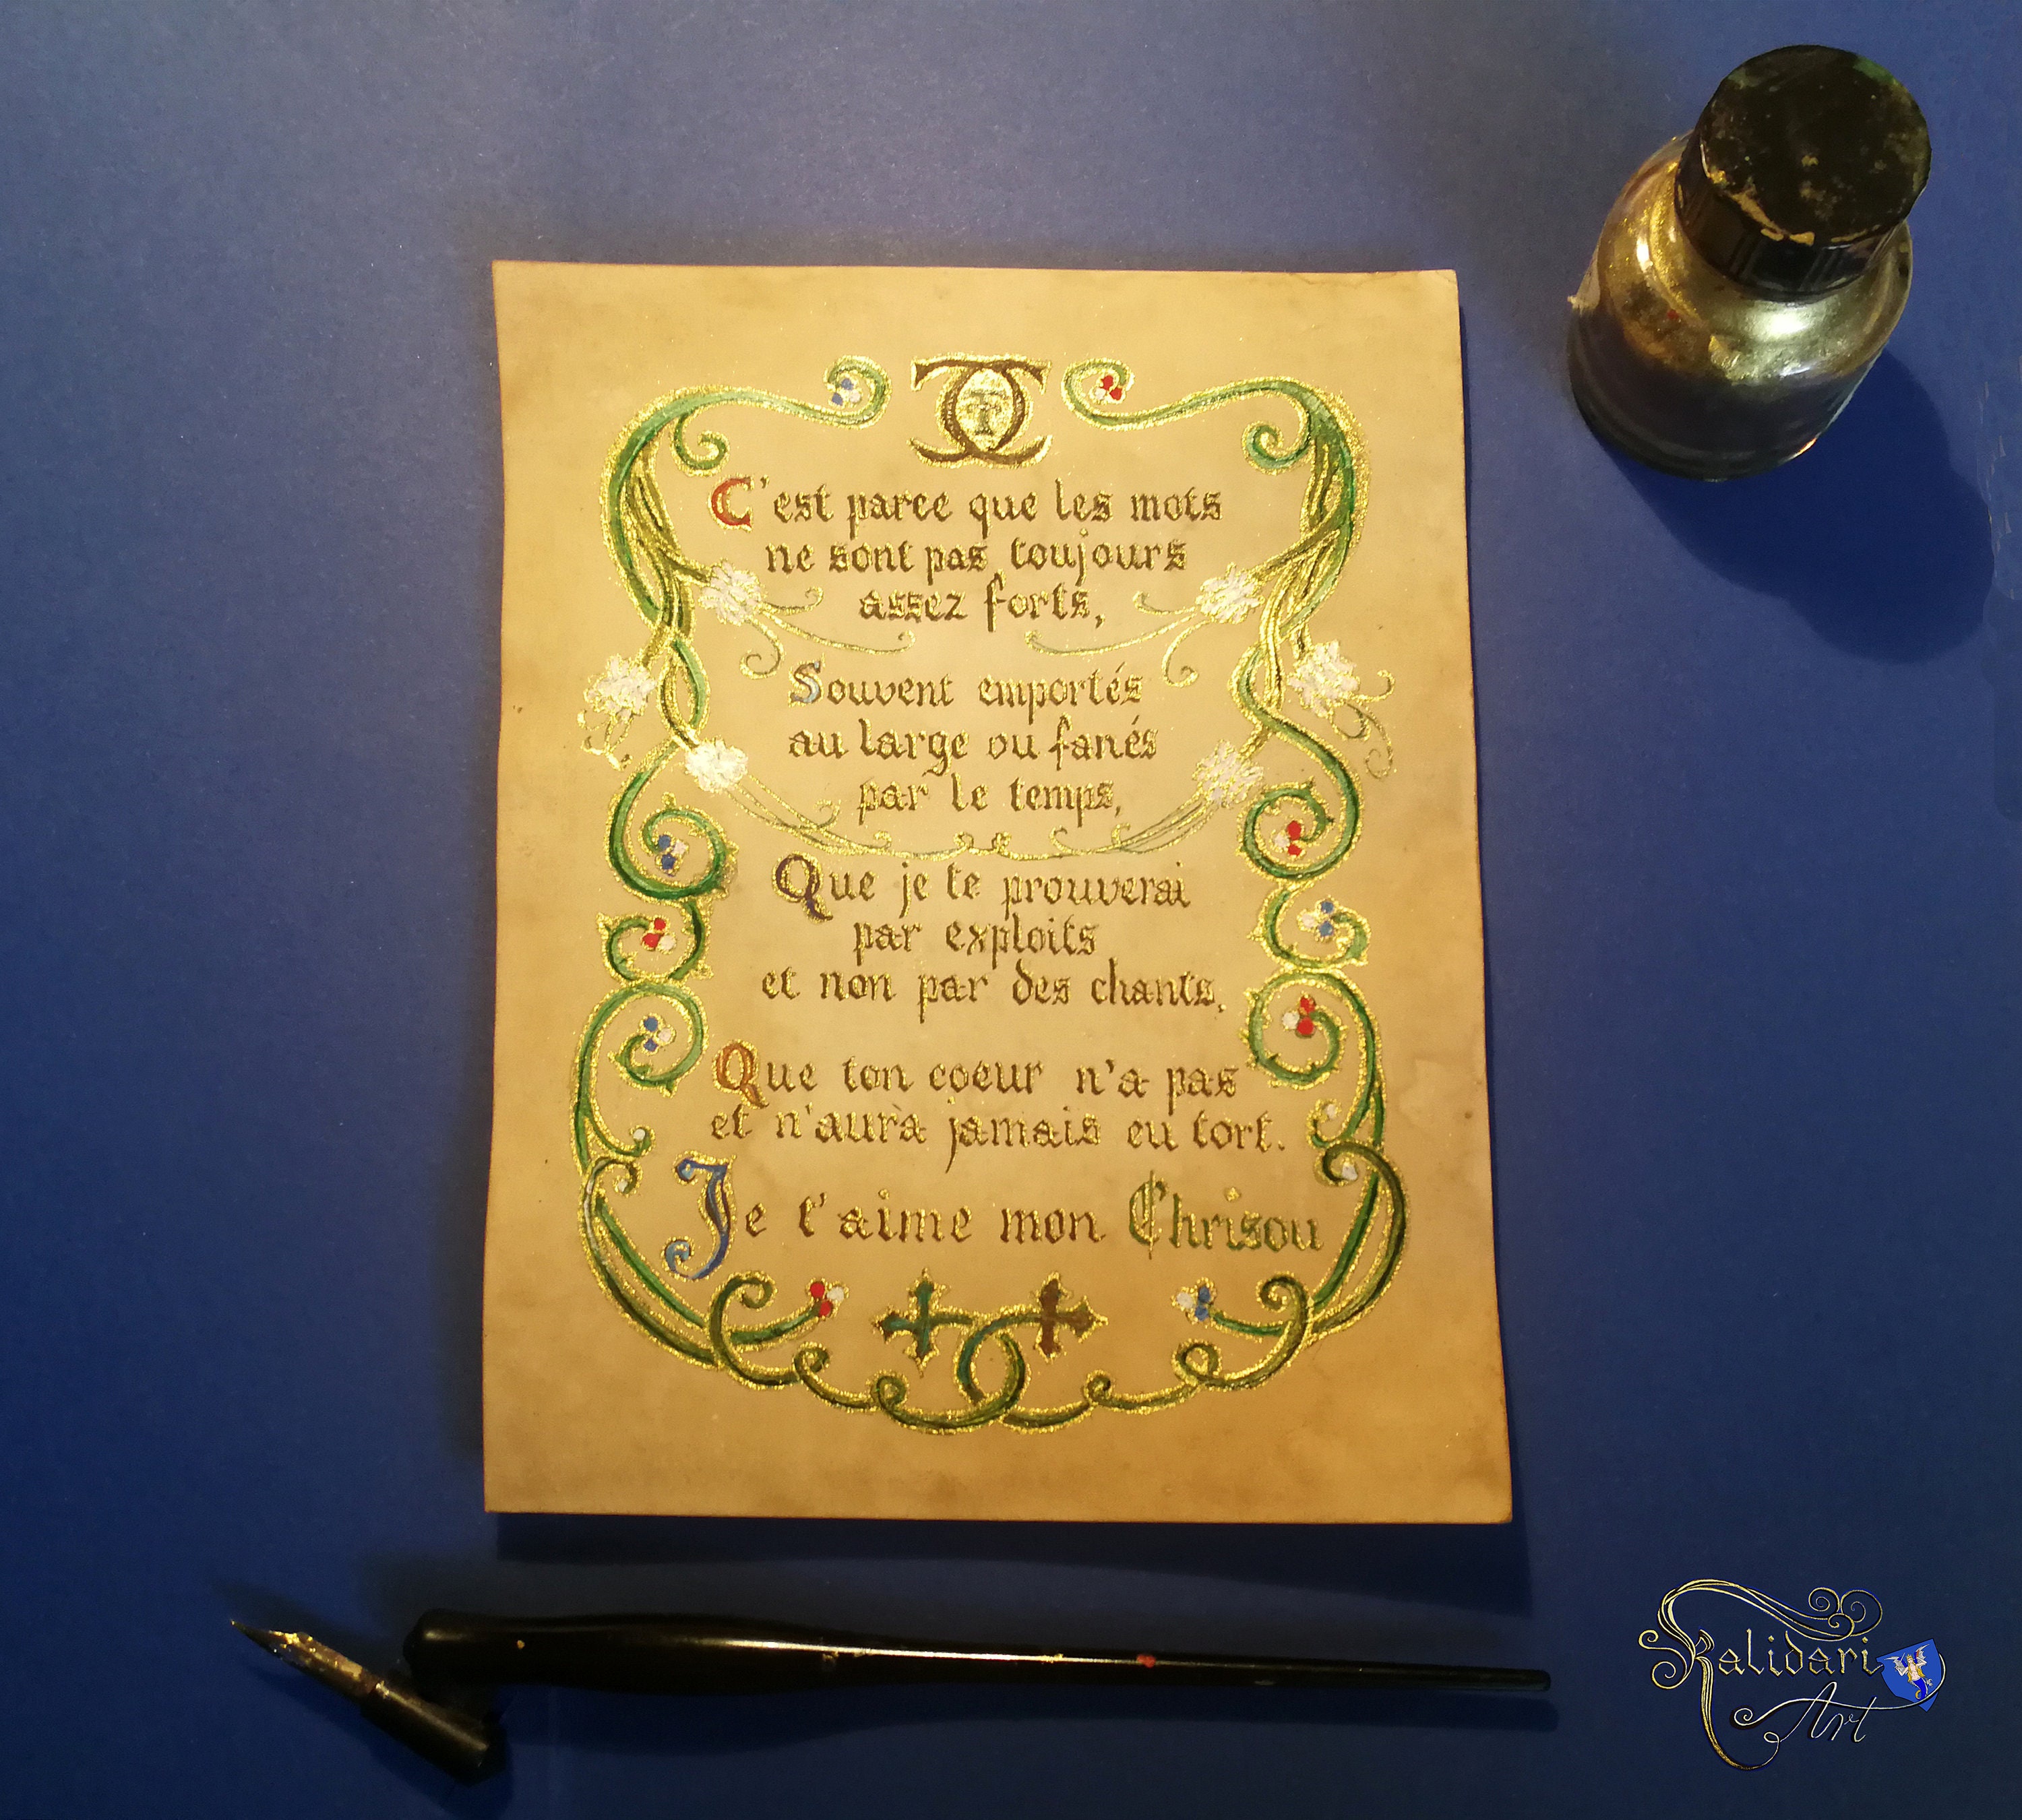 C'est parce que les mots
ne sont pas toujours
assez forts,
Souvent emportés
au large ou fanés
par le temps,
Que je te prouverai
par exploits
et non par des chants,
Que ton coeur n'a pas
et n'aura jamais eu tort.
Je t'aime mon Chrisou
Kalidari
Art